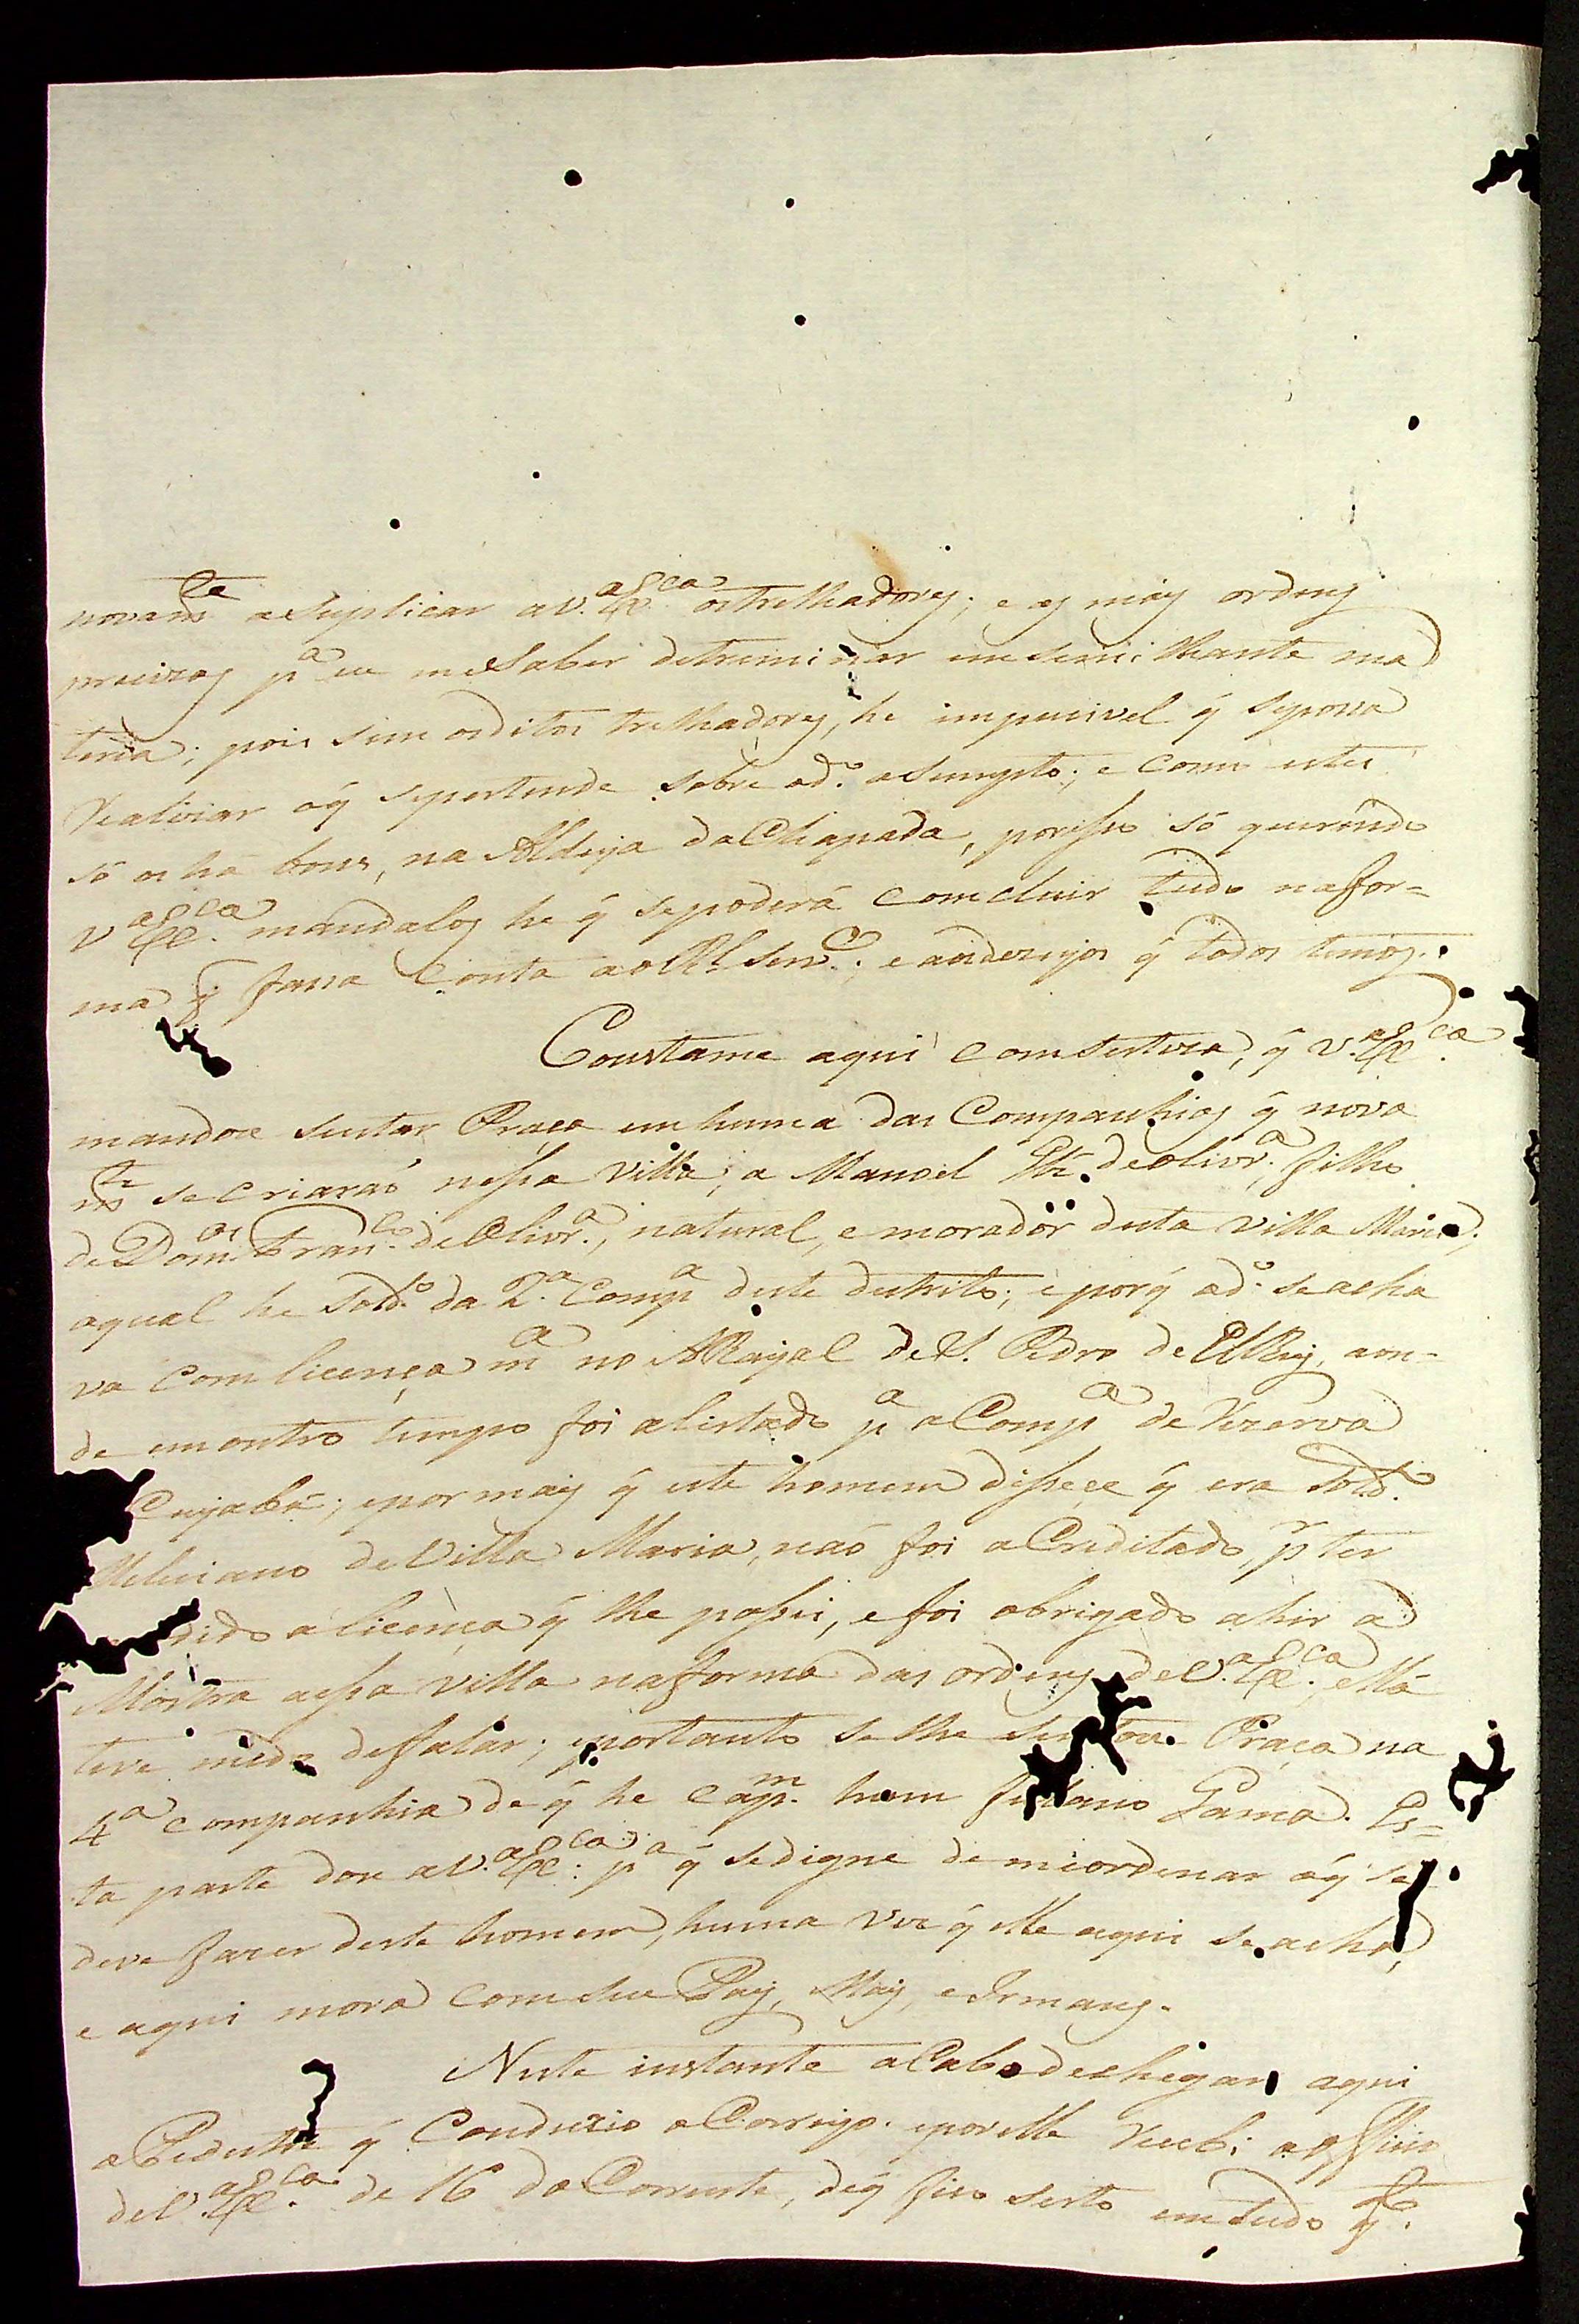 novam.te a Suplicar a V. Ex.ca os trelhadores; e as mais ordens
precizas p.a eu me Saber detreminar em semilhante ma
teria; pois sem os ditos trelhadores, he impucivel q̃ se possa
Realizar o q̃ se pertende sobre o d.o asumpto; e como estes
só os há bons, na Aldeya da Chapada, por isso só querendo
V. Ex.ca mandalos he q̃ se poderá comcluir tudo na for=
ma q̃ fassa conta ao Rl. Serv.o; e aos dezejos q̃ todos temos.
Constame aqui com serteza, q̃ V. Ex.ca
mandou sentar Praça em huma das Companhias q̃ nova
m.te se criaraó nessa Villa, a Manoel de Olivr.a, filho
de Dom.os Fran.co de Olivr.a, natural, e morador desta Villa Maria,
a qual he Sold.o da 2.a Comp.a deste destrito; e porq̃ o d.o se acha
va com licença m.a no ARayal de S. Pedro de ElRey, aon=
de em outro tempo foi alistado p.a a Comp.a de Rezerva
Cuyabá; e por mais q̃ este homem dissece q̃ era Sold.o
Meliciano de Villa Maria, naó foi aCreditado, p.r ter
dido a licença q̃ lhe passei, e foi obrigado a hir a
Mostra a essa Villa na forma das ordens de V. Ex.ca, e lá
teve medo de falar; e portanto se lhe sentou Praça na
4.a companhia de q̃ he Cap.m hum fulano Gama. Es=
ta parte dou a V. Ex.ca p.a q̃ se digne de mi ordenar o q̃ se
deve fazer deste homem, huma vez q̃ elle aqui se acha,
e aqui mora com seu Pay, May, e Irmans.
Neste instante aCaba de chigar aqui
o Pedestre q̃ Conduzio o Correyo. e por elle Recebi o officio
de V. Ex.ca de 16 do Corrente, de q̃ fico serto em tudo q.